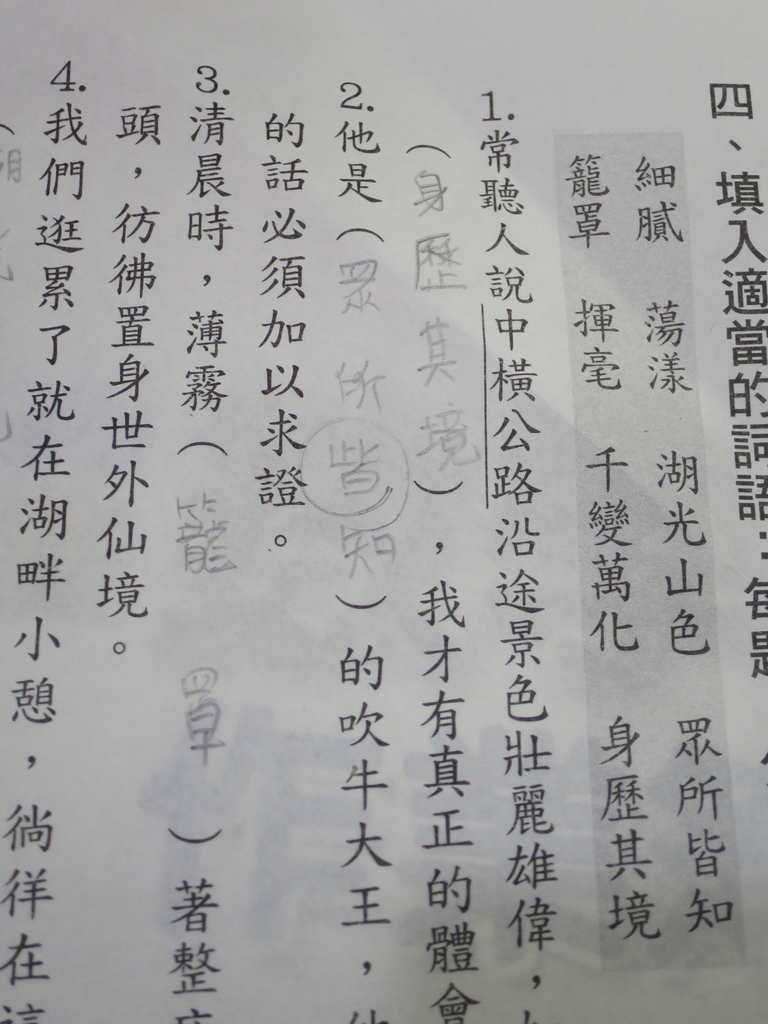 四、填入適當的詞語：每題
細膩　蕩漾　湖光山色　眾所皆知
籠罩　揮毫　千變萬化　身歷其境
1.常聽人說中橫公路沿途景色壯麗雄偉，
（身歷其境），我才有真正的體會
2.他是（眾所皆知）的吹牛大王，他
的話必須加以求證。
3.清晨時，薄霧（籠罩）著整
頭，彷彿置身世外仙境。
4.我們逛累了就在湖畔小憩，徜徉在這